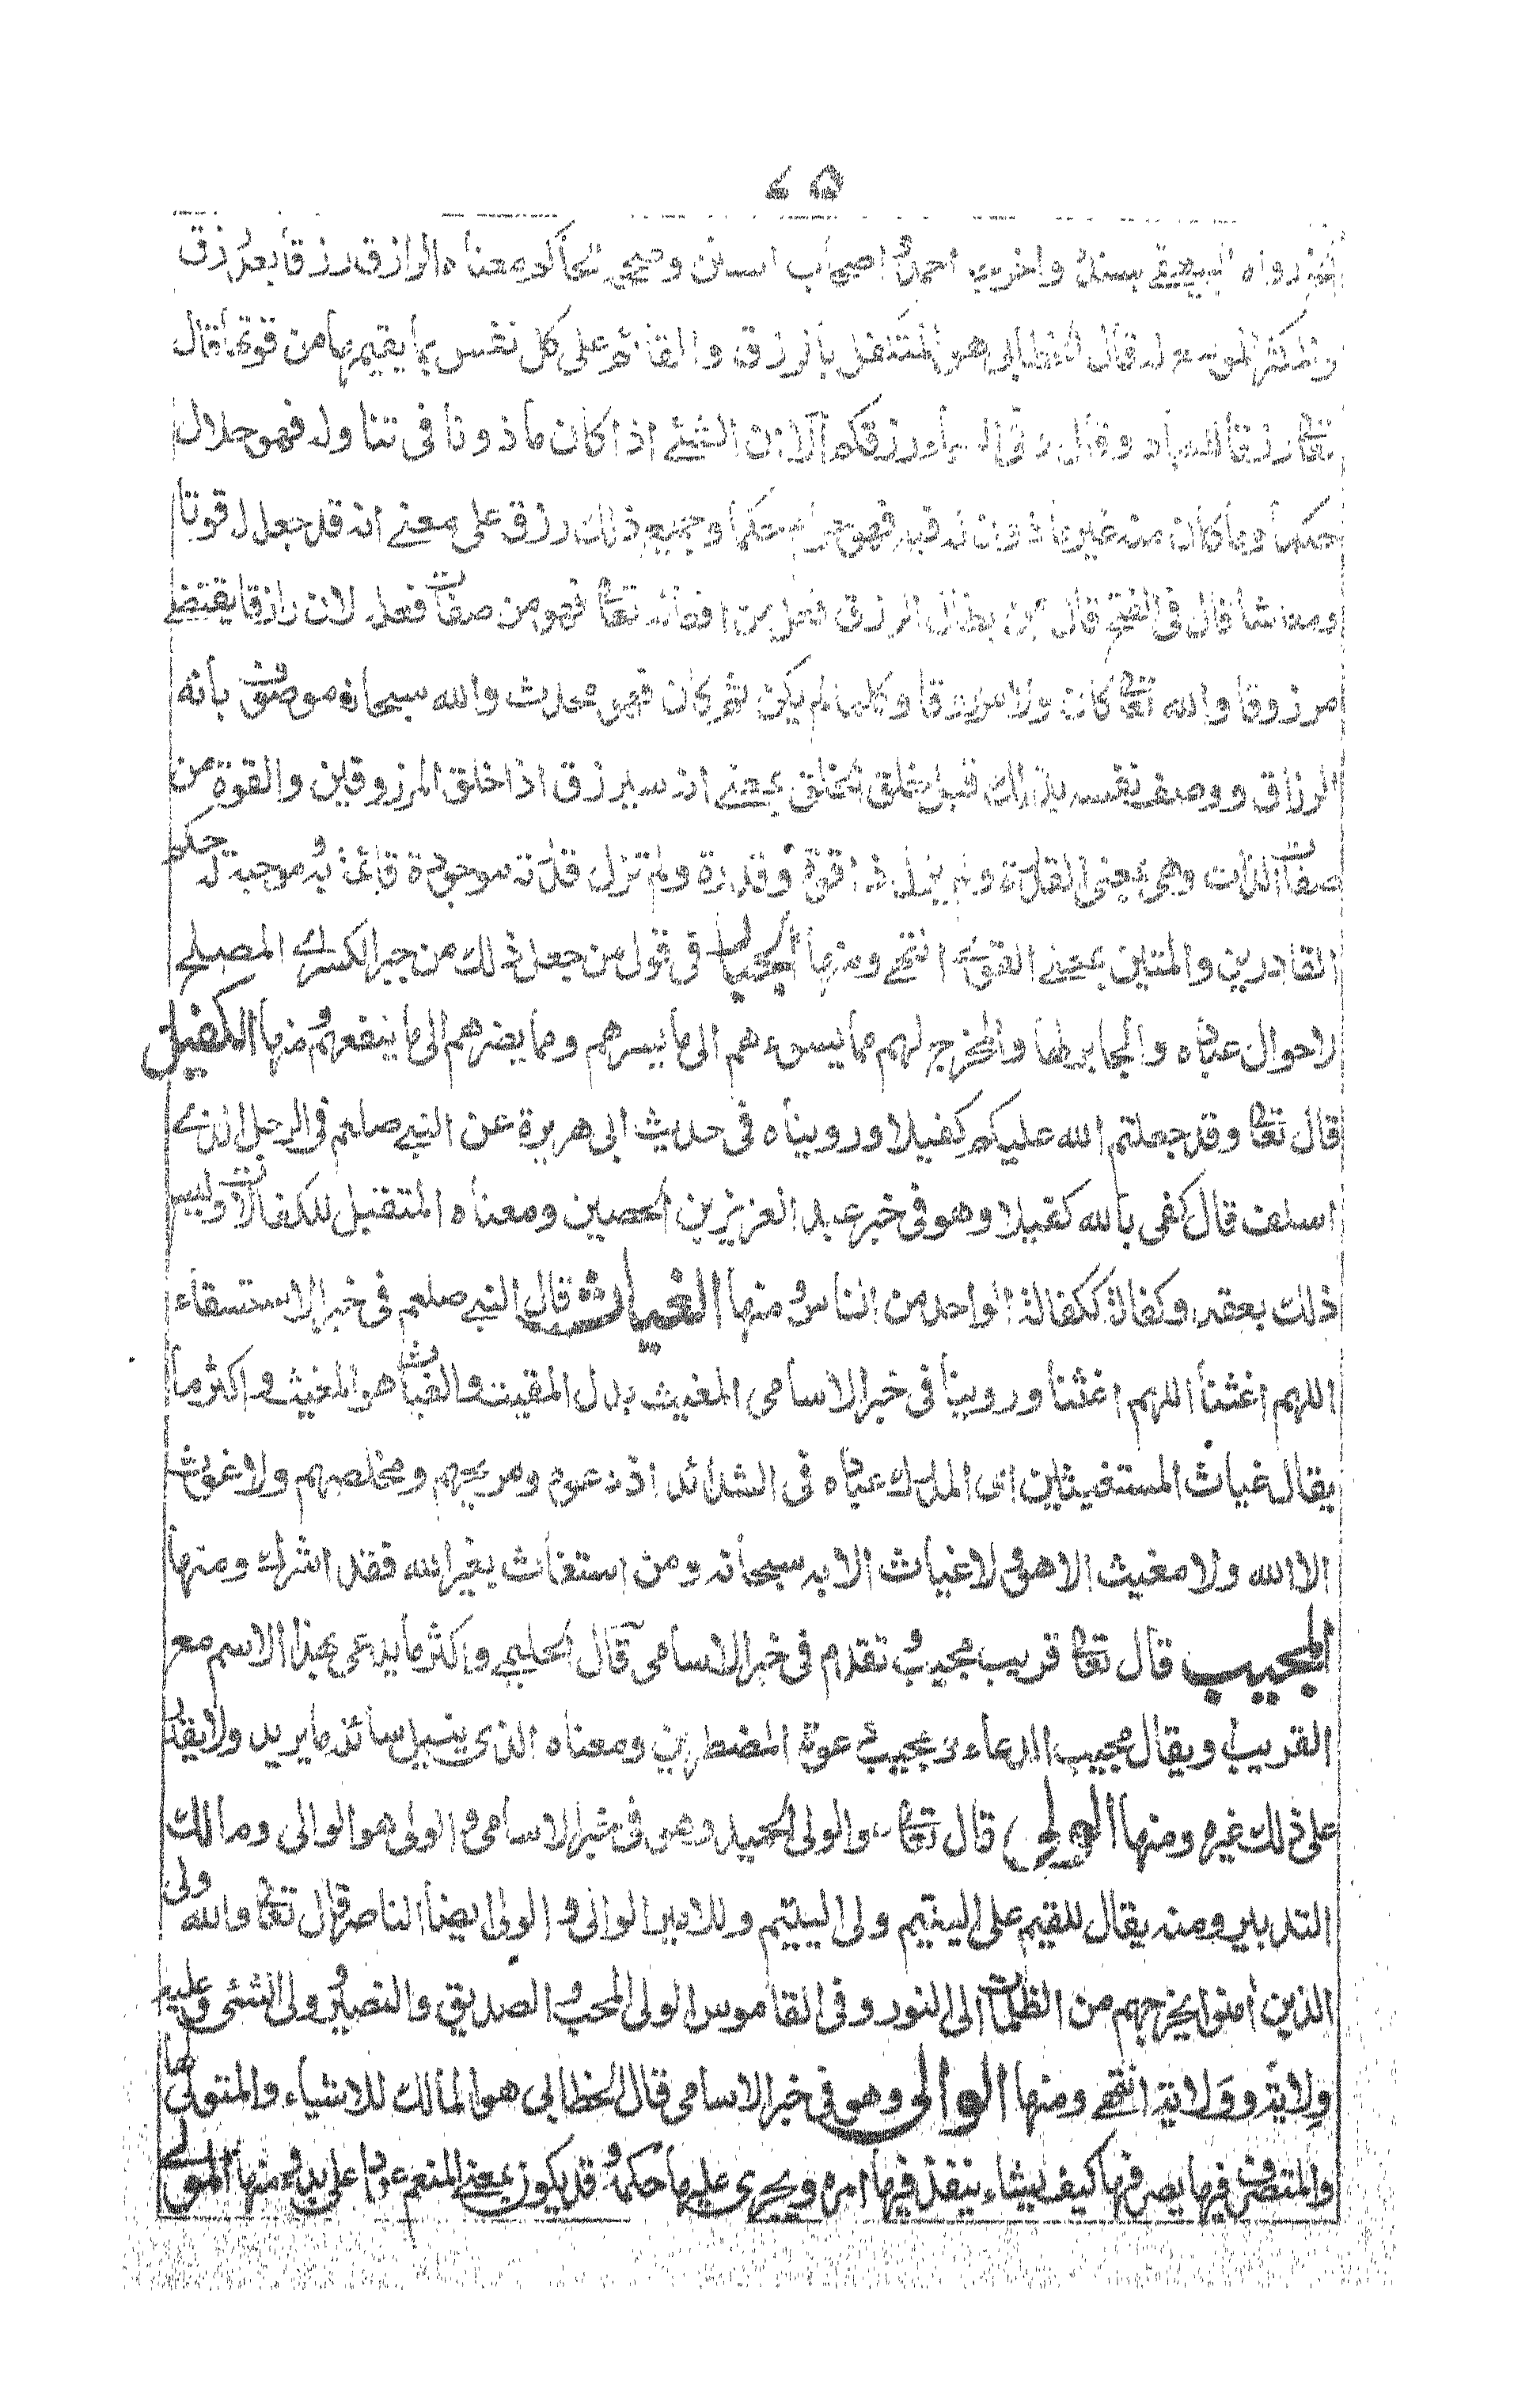 ٤٥
رواه البيهقي بسنده واخرجه احمد و اصحاب السنن وصححه الحاكم ومعناه الرازق رزقا بعد رزق
والمكثر الموسع له قال الخطابي هو المتكفل بالرزق والقائم على كل نفس بما يقيمها من قوتها قال
تعا رزقا للعباد وقال وفي السماء رزقكم الا ان الشئ اذا كان ماذونا في تناوله فهو حلال
حكما وما كان منه غير ماذون له فيه فهو حرام حكما وجميع ذلك رزق على معنى انه قد جعل له قوتا
ومعاشا قال في الفتح قال ابن بطال الرزق فعل من افعاله تعا فهو من صفات فعله لان رازقا يقتضے
مرزوقا والله تعا كان ولا مرزوقا وكلما لم يكن ثم كان فهو محدث والله سبحانه موصوف بانه
الرزاق ووصف نفسه بذلك قبل خلق الخلق بمعنے انه سيرزق اذا خلق المرزوقين والقوة من
صفات الذات وهي بمعنى القدرة ولم يزل ذا قوة وقدرة ولم تزل قدرته موجودة قائمة به موجبة له حكم
القادرين والمتين بمعنے القوي انتهے ومنها الجبار في قول من جعل ذلك من جبر الكسر اے المصلح
لاحوال عباده والجابر لها والمخرج لهم مما يسوءهم الى ما يسرهم ومما يضرهم الى ما ينفعهم و منها الكفيل
قال تعا وقد جعلتم الله عليكم كفيلا وروينا ه في حديث ابي هريرة عن النبے صلعم في الرجل الذے
اسلف قال كفى بالله كفيلا وهو في خبر عبد العزيز بن الحصين ومعناه المتقبل للكفالات وليس
ذلك بعقد وكفالة ككفالة الواحد من الناس و منها الغياث قال النبے صلعم في خبر الاستسقاء
اللهم اغثنا اللهم اغثنا وروينا في خبر الاسامى المغيث بدل المقيت والغياث هو المغيث و اكثر ما
يقال غياث المستغيثين اى المدرك عباده في الشدائد اذا دعوه ومريحهم ومخلصهم ولا غوث
الا الله ولا مغيث الا هو و لا غياث الا به سبحانه ومن استغاث بغير الله فقد اشرك ومنها
المجيب قال تعا قريب مجيب و تقدم في خبر الاسامى قال الحليمے و اكثر ما يدعى بهذا الاسم مع
القريب و يقال مجيب الدعاء و مجيب دعوة المضطرين ومعناه الذى ينيل سائله ما يريد ولا يقدر
على ذلك غيره ومنها الولي قال تعا و الولى الحميد وهو في خبر الاسامى و الولى هو الوالى ومالك
التدبير ومنه يقال للقيم على اليتيم ولى اليتيم وللامير الوالى و الولى ايضا الناصر قال تعا والله ولى
الذين امنوا يخرجهم من الظلمات الى النور و في القاموس الولى المحب و الصديق والنصير و ولى الشئ و عليه
ولاية و وَلاية انتهے ومنها الوالى وهو في خبر الاسامى قال الخطابى هو المالك للاشياء والمتولى لها
والمتصرف فيها يصرفها كيف يشاء ينفذ فيها امره ويجرى عليها حكمه و قد يكون بمعنے المنعم عودا على بدء و منها المولے